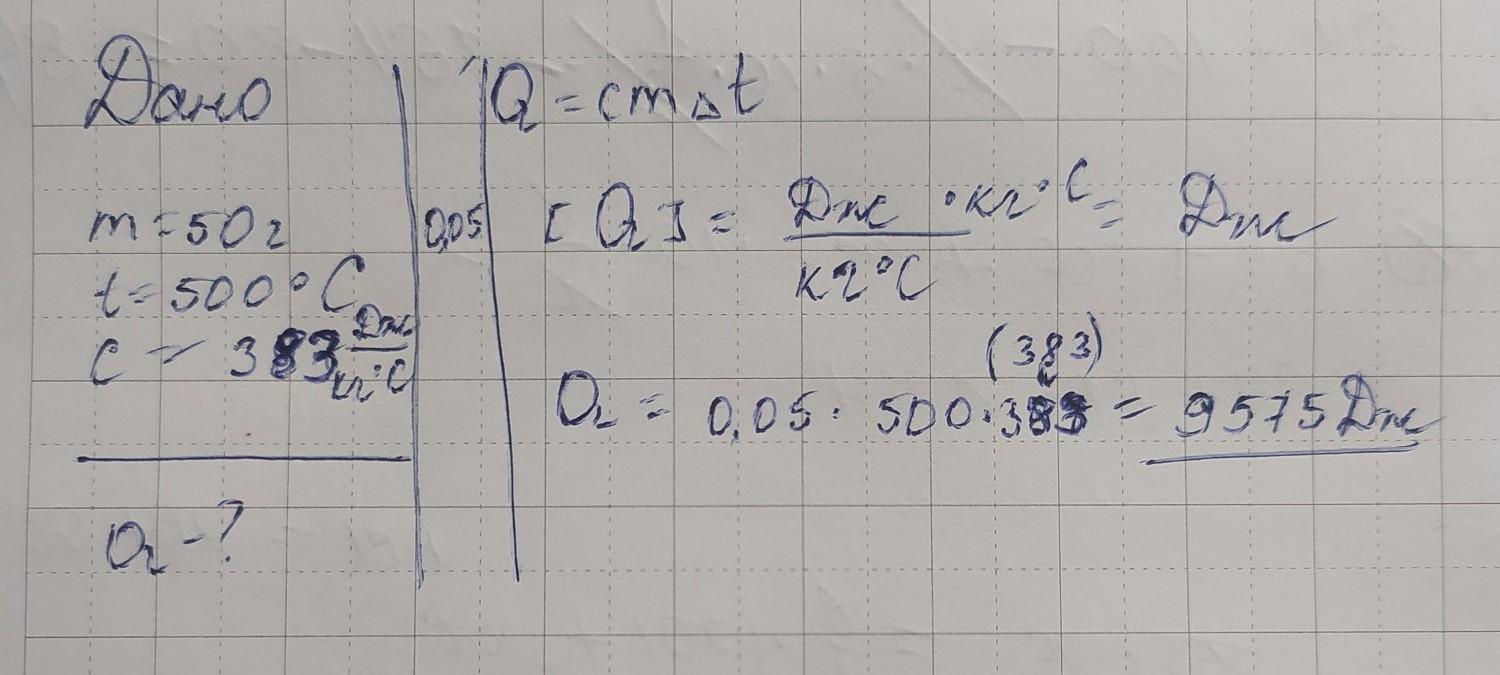 Дано
m=50г
t=500°C
c = 383 Дж/кг°C
Q-?
0,05
Q = cm△t
[Q] = Дж/кг°C ·кг°C = Дж
(383)
Q = 0,05 · 500·383 = 9575Дж